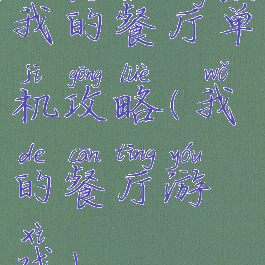 我的餐厅单
jī gōng lüè wǒ
机攻略(我
de cān tīng yóu
的餐厅游
xì
戏)